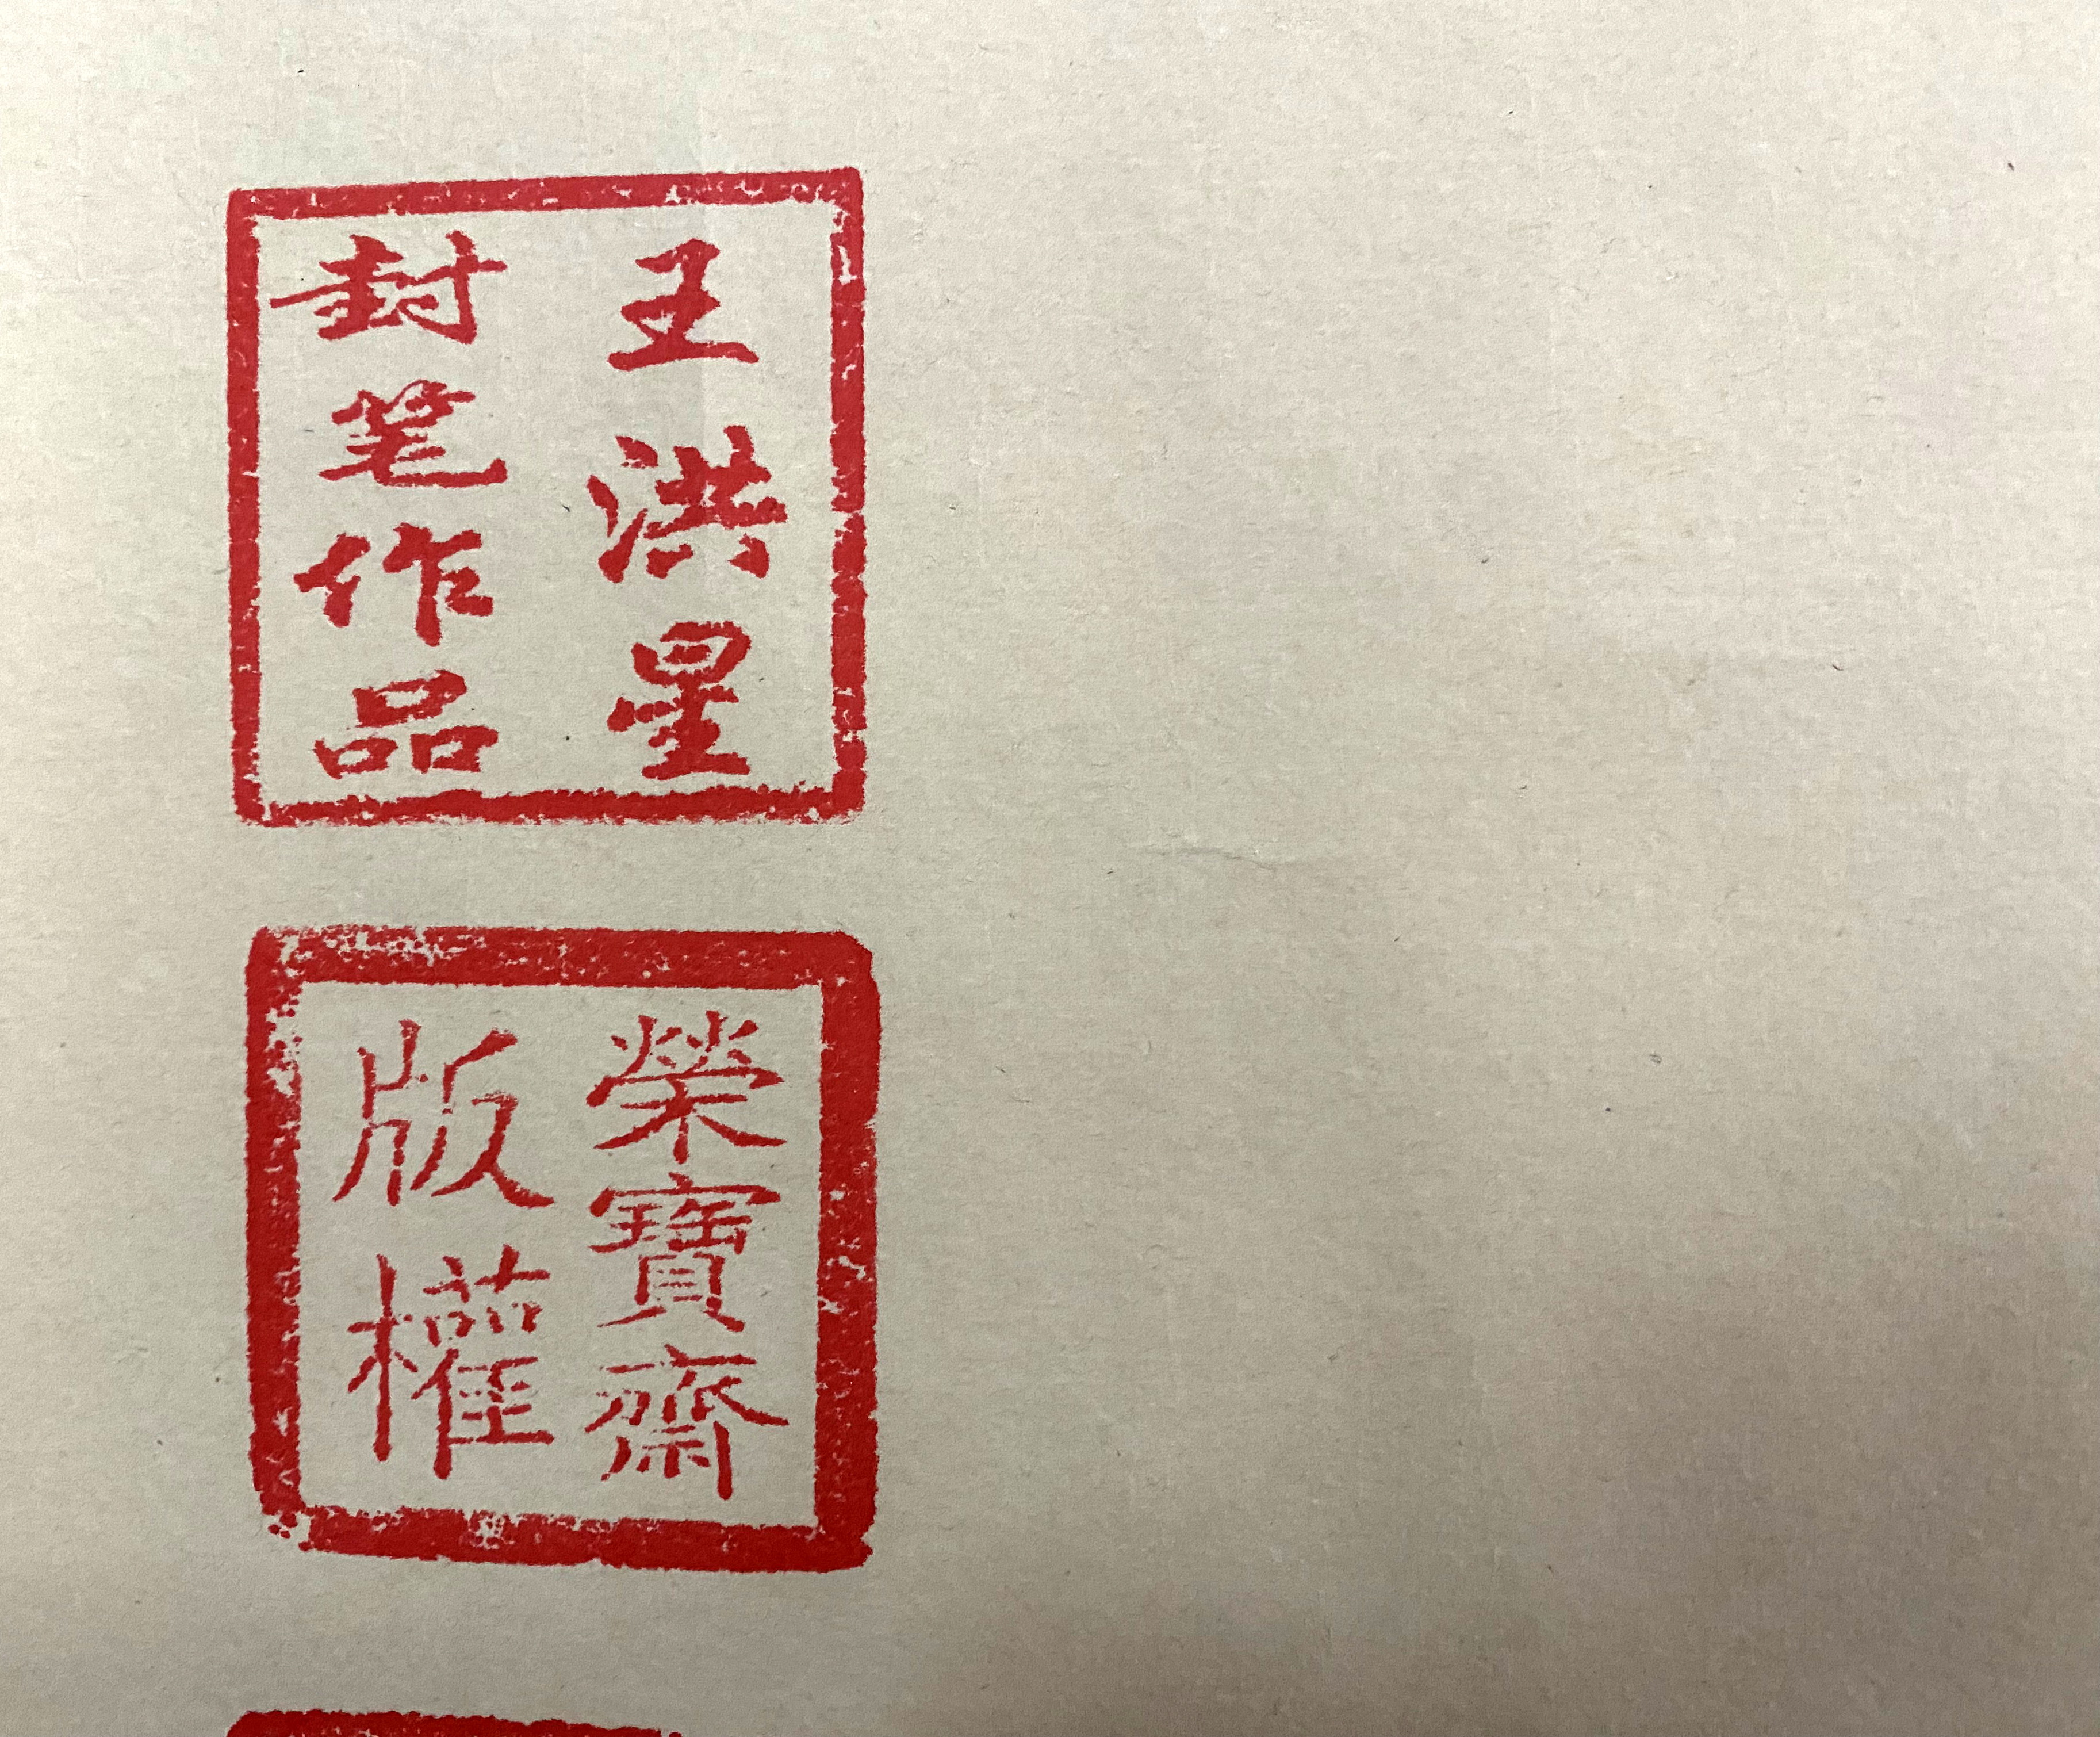 王洪星
封笔作品
榮寶齋
版權